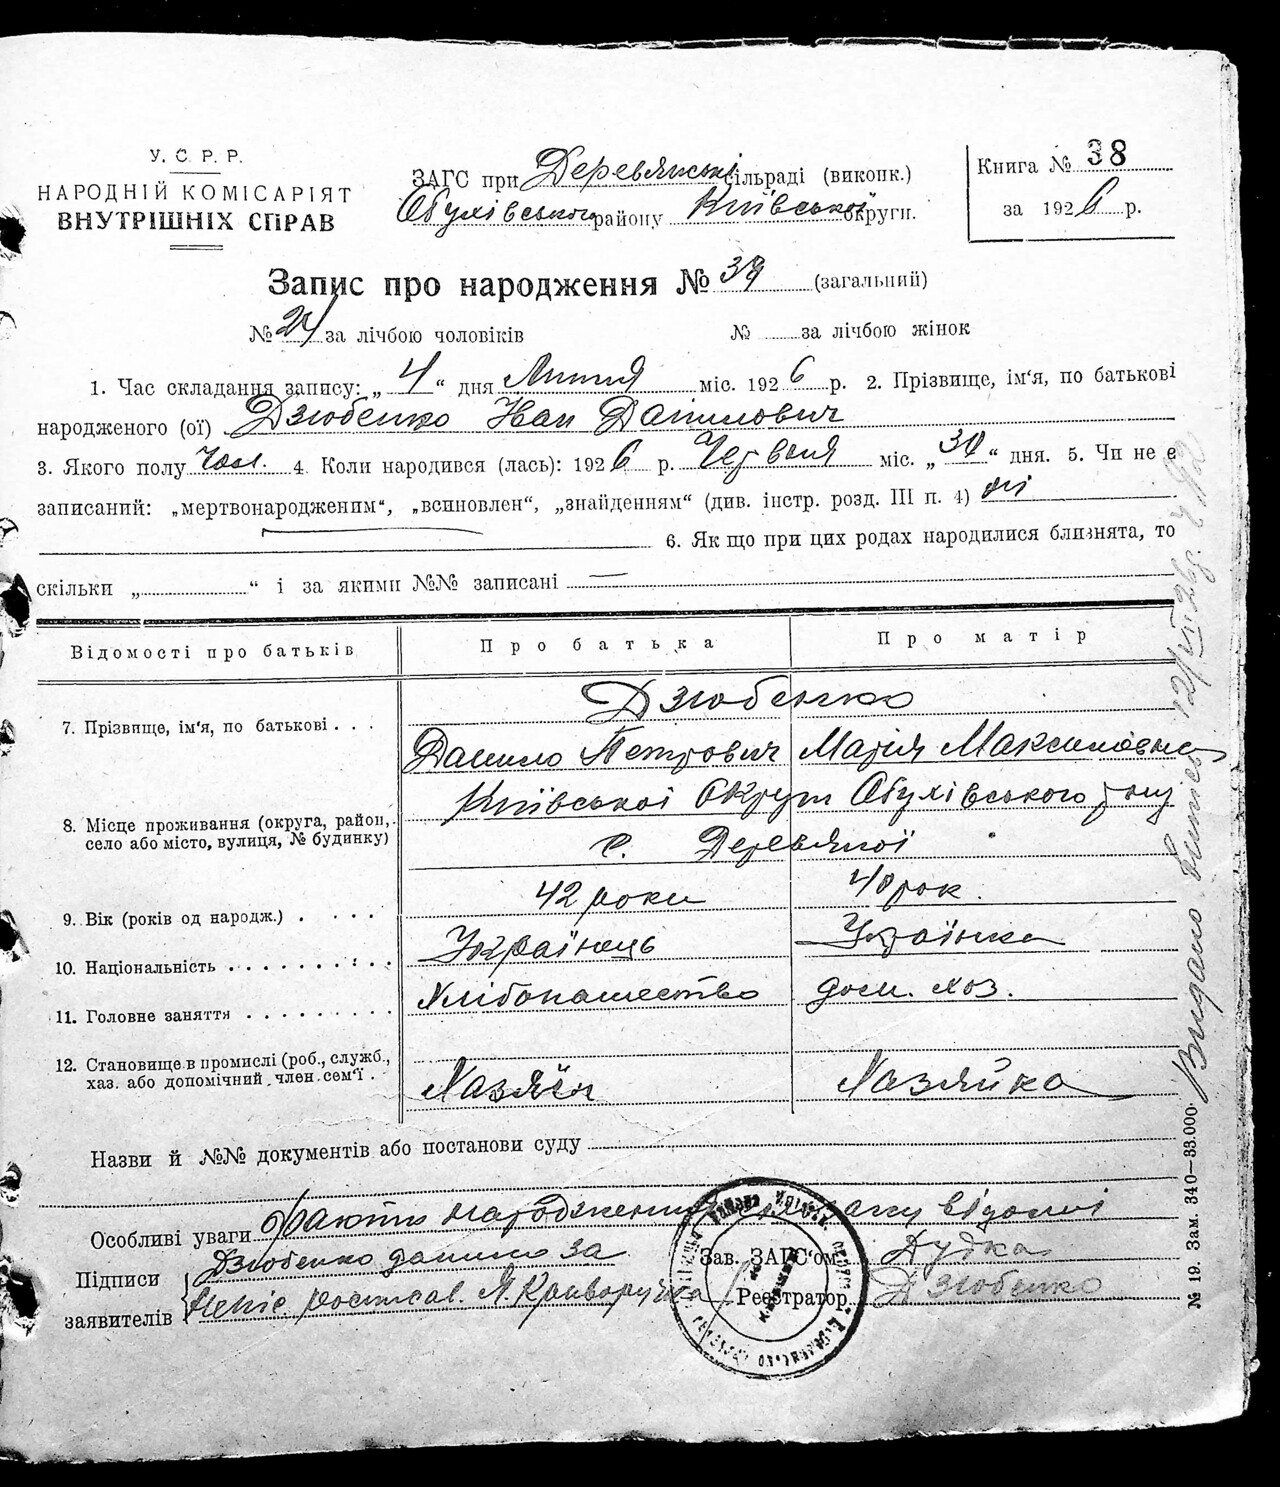 У. С. Р. Р.
НАРОДНІЙ КОМІСАРІЯТ
ВНУТРІШНІХ СПРАВ
ЗАГС при Деревянські сільраді (виконк.)
Обухівського району Київської округи.
Книга № 38
за 1926 р.
Запис про народження № 39 (загальний)
№ 21 за лічбою чоловіків № за лічбою жінок
1. Час складання запису: „4“ дня Липня міс. 1926 р. 2. Прізвище, ім'я, по батькові
народженого (ої) Дзюбенко Іван Данилович
3. Якого полу чол. 4. Коли народився (лась): 1926 р. Червня міс. „30“ дня. 5. Чи не є
записаний: „мертвонародженим“, „всиновлен“, „знайденням“ (див. інстр. розд. III п. 4) ні
6. Як що при цих родах народилися близнята, то
скільки „ “ і за якими №№ записані —
Відомості про батьків Про батька Про матір
Дзюбенко
7. Прізвище, ім'я, по батькові . . . Данило Петрович Марія Максимовна
8. Місце проживання (округа, район, село або місто, вулиця, № будинку) Київської Округи Обухівського р-ну
с. Деревяної
9. Вік (років од народж.) . . . . 42 роки 40 рок.
10. Національність . . . . . . . . . Українець Українка
11. Головне заняття . . . . . . . . . Хлібопашество дом. хоз.
12. Становище в промислі (роб., служб.,
хаз. або допомічний член сем'ї . Хазяїн Хазяйка
Назви й №№ документів або постанови суду
Особливі уваги факт народження відомі
Підписи заявителів Дзюбенко Данило за
Зав. ЗАГС'ом Дудка
Реєстратор Дзюбенко
№ 19. Зам. 340—33.000.
Видано